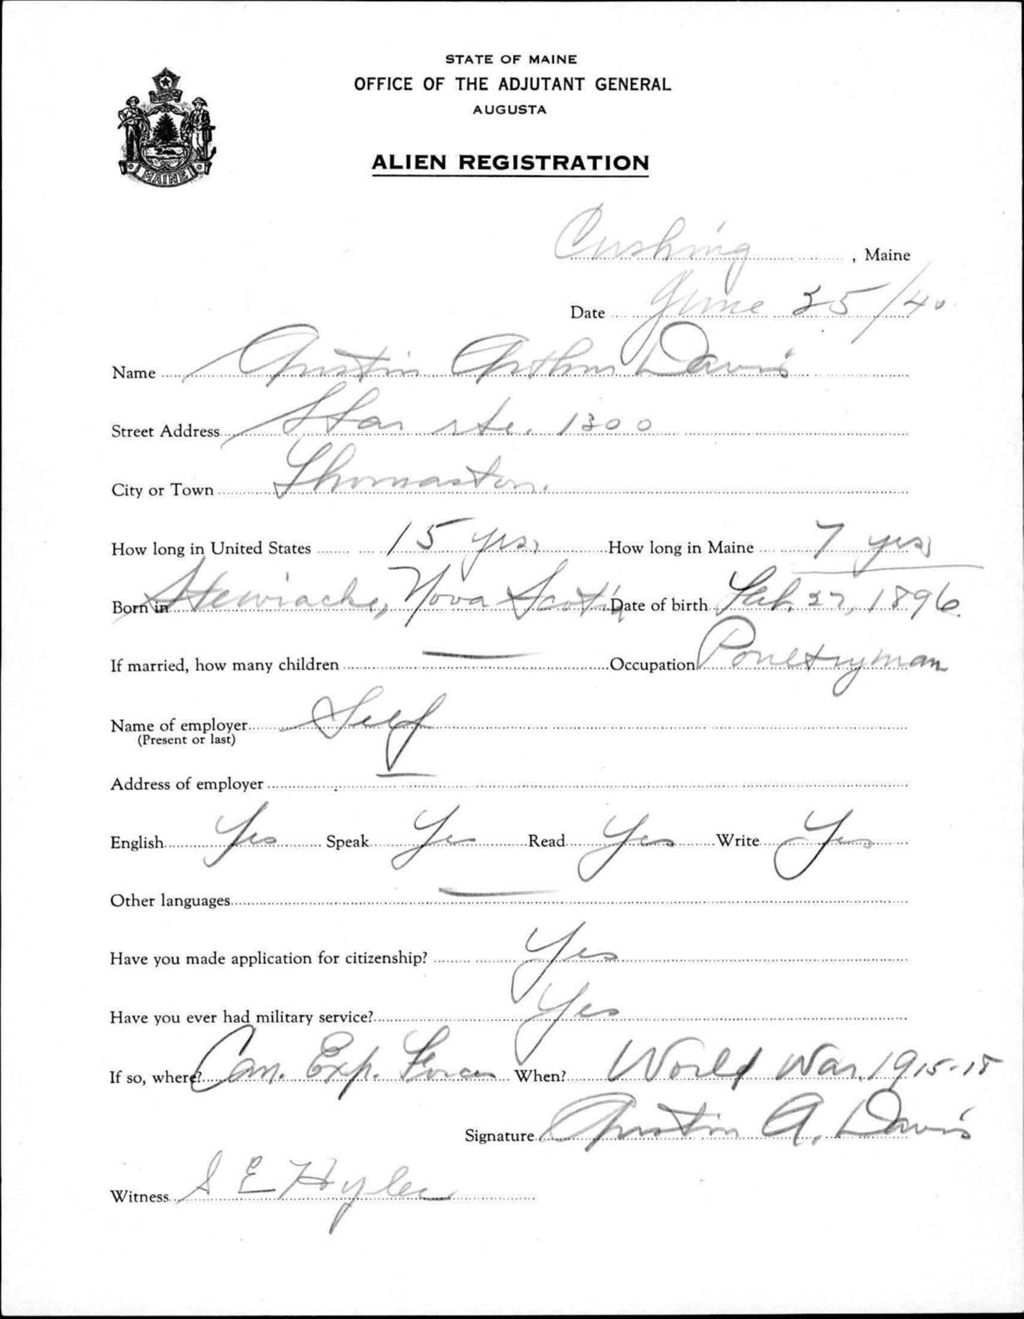 STATE OF MAINE
OFFICE OF THE ADJUTANT GENERAL
AUGUSTA
ALIEN REGISTRATION
MAINE
Cushing, Maine
Date June 25/40
Name Austin Arthur Davis
Street Address Star rte. 1300
City or Town Thomaston.
How long in United States 15 yrs, How long in Maine 7 yrs
Born in Stewiacke, Nova Scotia Date of birth Feb. 27, 1896
If married, how many children — Occupation Poultryman
Name of employer Self
(Present or last)
Address of employer —
English Yes Speak Yes Read Yes Write Yes
Other languages —
Have you made application for citizenship? Yes
Have you ever had military service? Yes
If so, where? Can. Exp. Forces When? World War. 1915-18
Signature Austin A. Davis
Witness S E Hyler